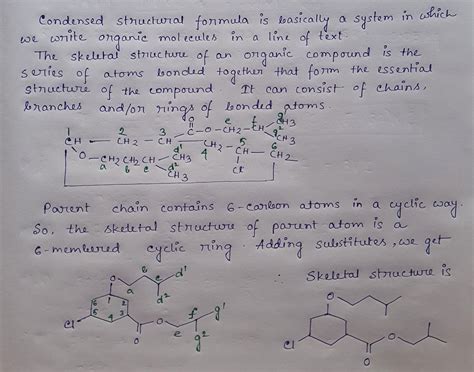 Condensed structural formula is basically a system in which
we write organic molecules in a line of text.
The skeletal structure of an organic compound is the
series of atoms bonded together that form the essential
structure of the compound. It can consist of chains,
branches and/or rings of bonded atoms.
O g'
1 2 3 C-O-CH2-CH CH3
CH - CH2 - CH e f g² CH3
O-CH2CH2CH d' CH3 CH2-CH-CH2
a b c d² CH3 4 5 6
Cl
Parent chain contains 6-carbon atoms in a cyclic way.
So, the skeletal structure of parent atom is a
6-membered cyclic ring. Adding substitutes, we get
O a b c d' d²
1 2 3 4 5 6
Cl O O e f g' g²
Skeletal structure is
O
Cl O O